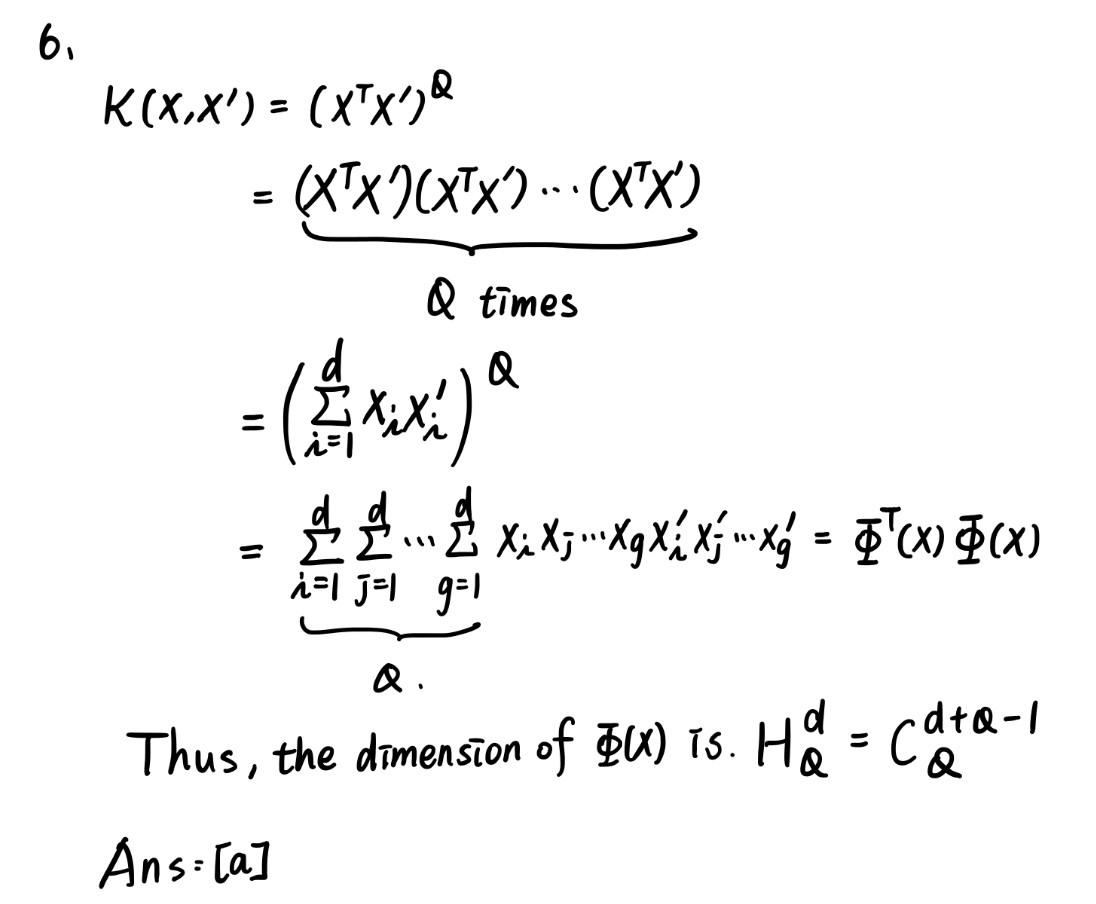 6.
K(x,x') = (x^T x')^Q
= (x^T x')(x^T x') ··· (x^T x')
Q times
= (∑_{i=1}^{d} x_i x_i')^Q
= ∑_{i=1}^{d} ∑_{j=1}^{d} ··· ∑_{g=1}^{d} x_i x_j ··· x_g x_i' x_j' ··· x_g' = Φ^T(x) Φ(x)
Q.
Thus, the dimension of Φ(x) is. H_Q^d = C_Q^{d+Q-1}
Ans: [a]